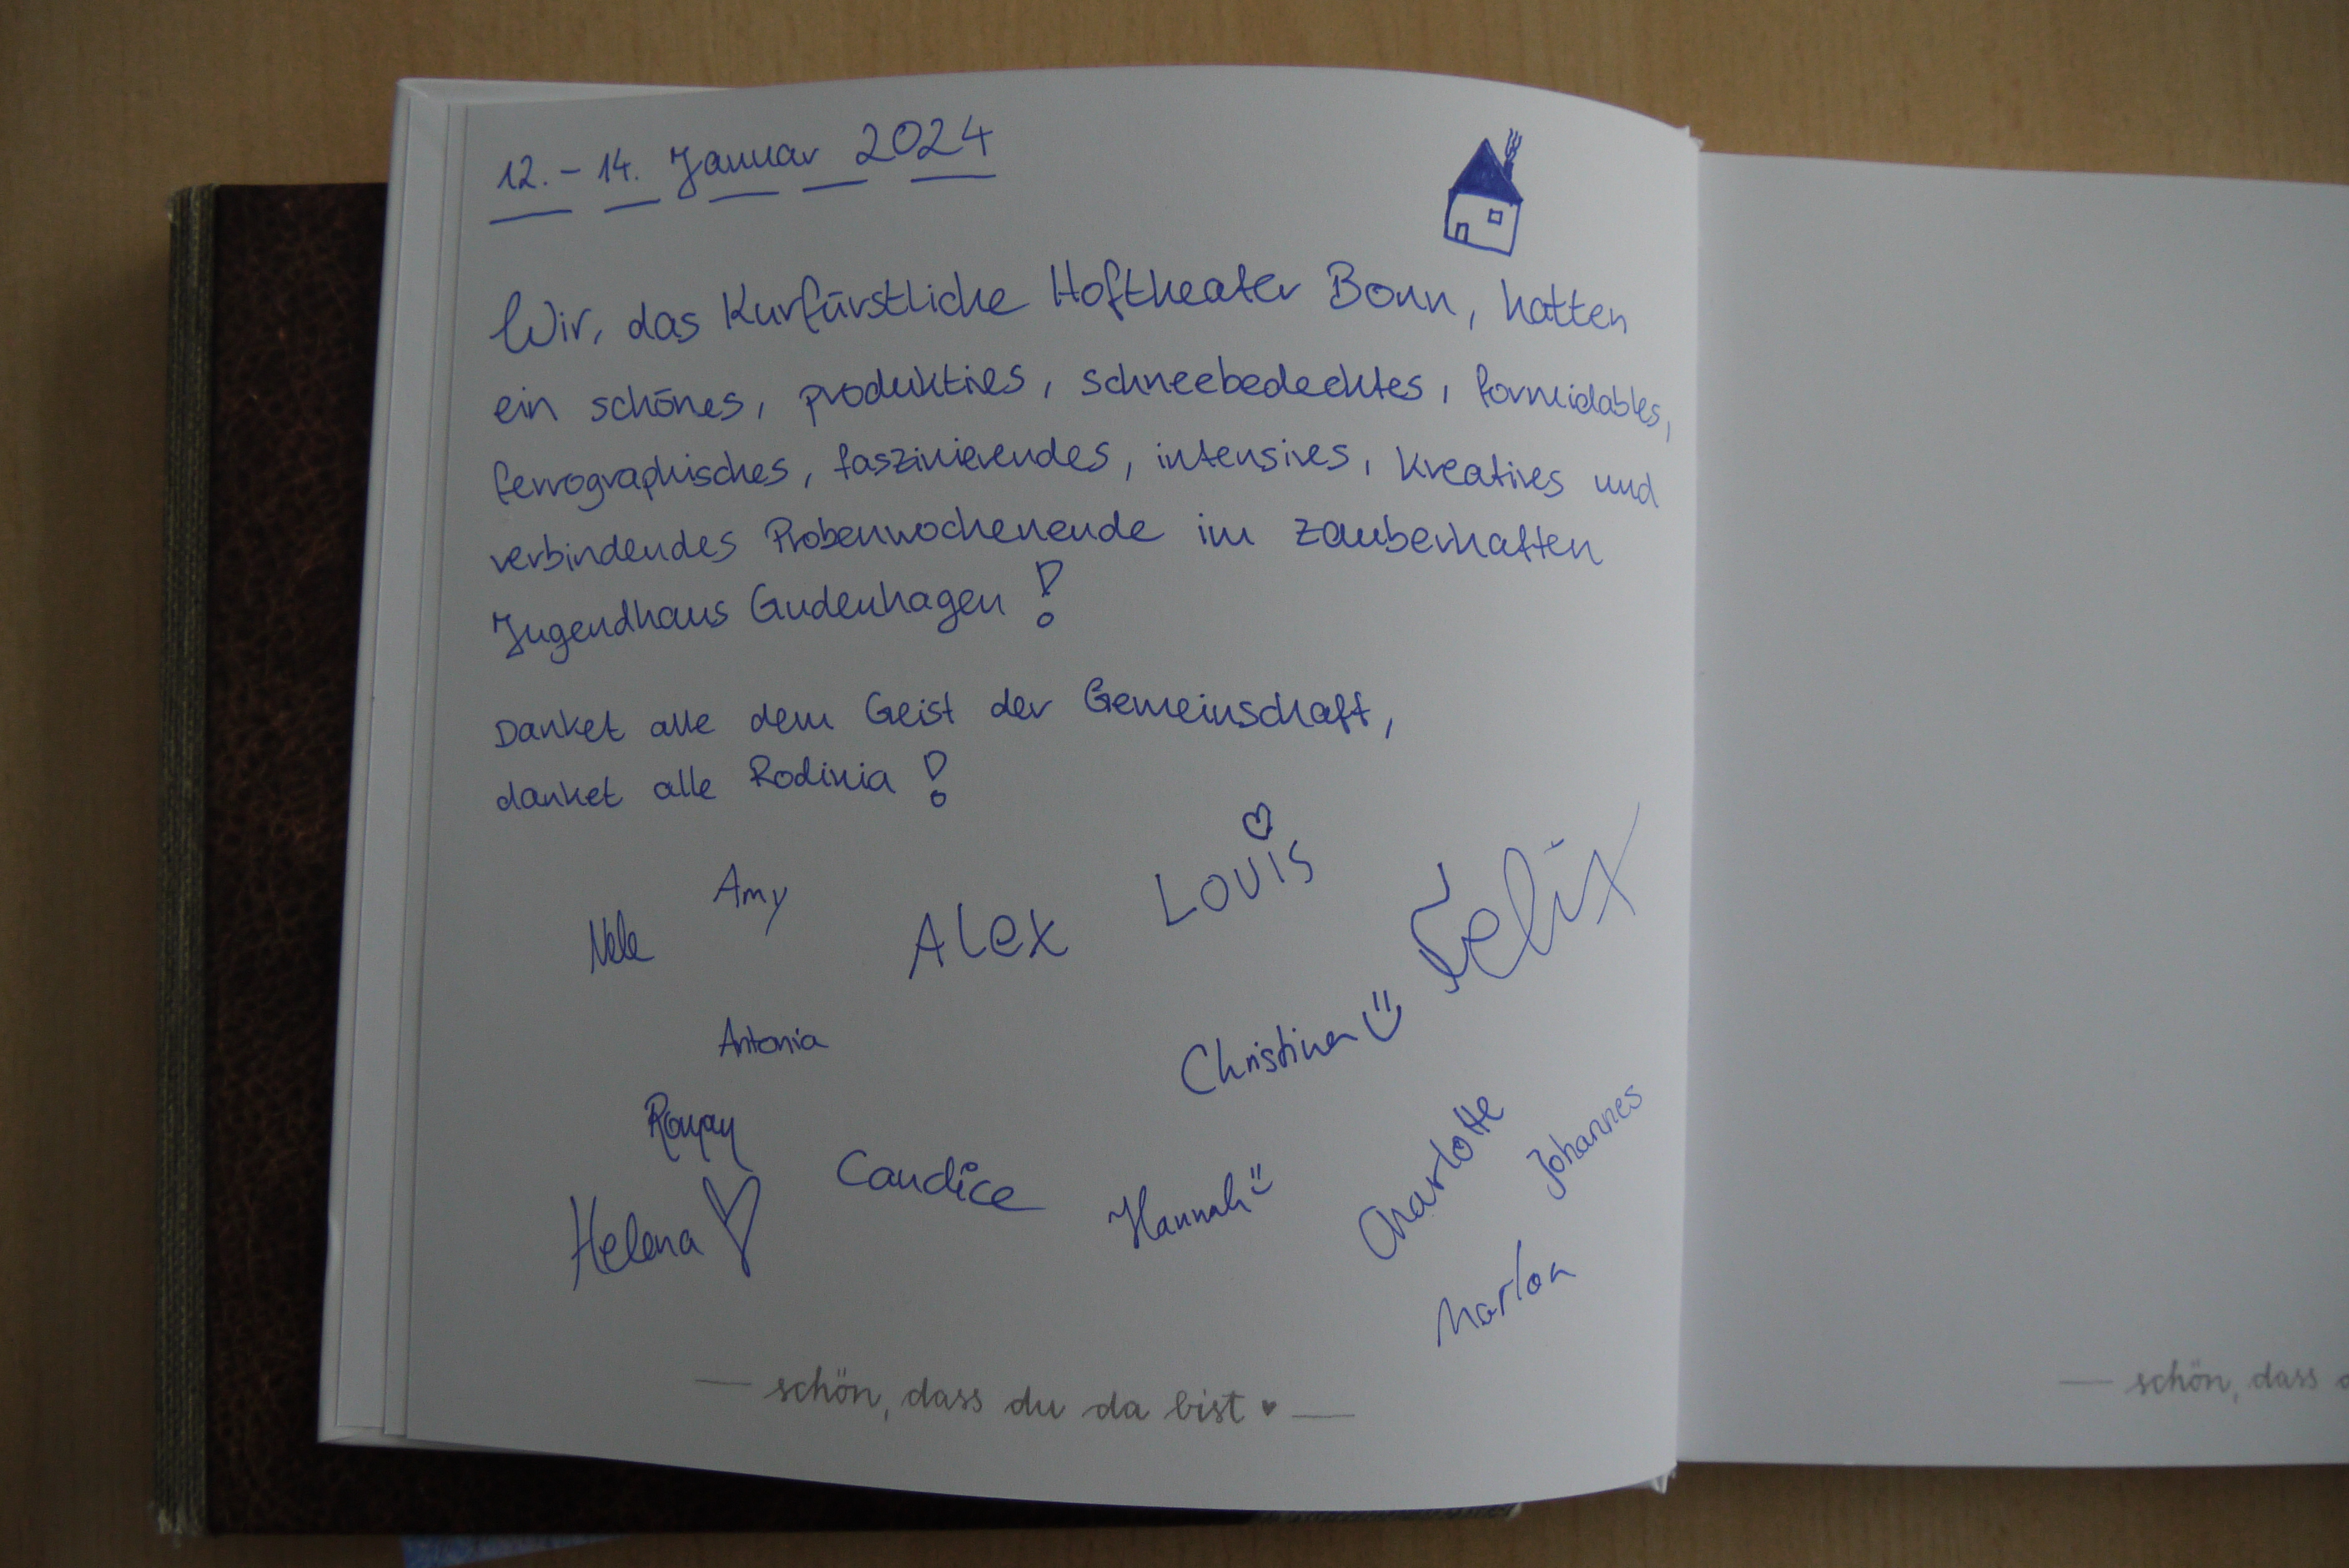 12. – 14. Januar 2024
Wir, das Kurfürstliche Hoftheater Bonn, hatten
ein schönes, produktives, schneebedecktes, formidables,
ferrographisches, faszinierendes, intensives, kreatives und
verbindendes Probenwochenende im zauberhaften
Jugendhaus Gudenhagen!
Danket alle dem Geist der Gemeinschaft,
danket alle Rodinia!
Amy
Louis
Nele
Alex
Felix
Antonia
Christina
Candice
Charlotte
Johannes
Helena
Hannah
Marlon
— schön, dass du da bist ♥ —
— schön, dass